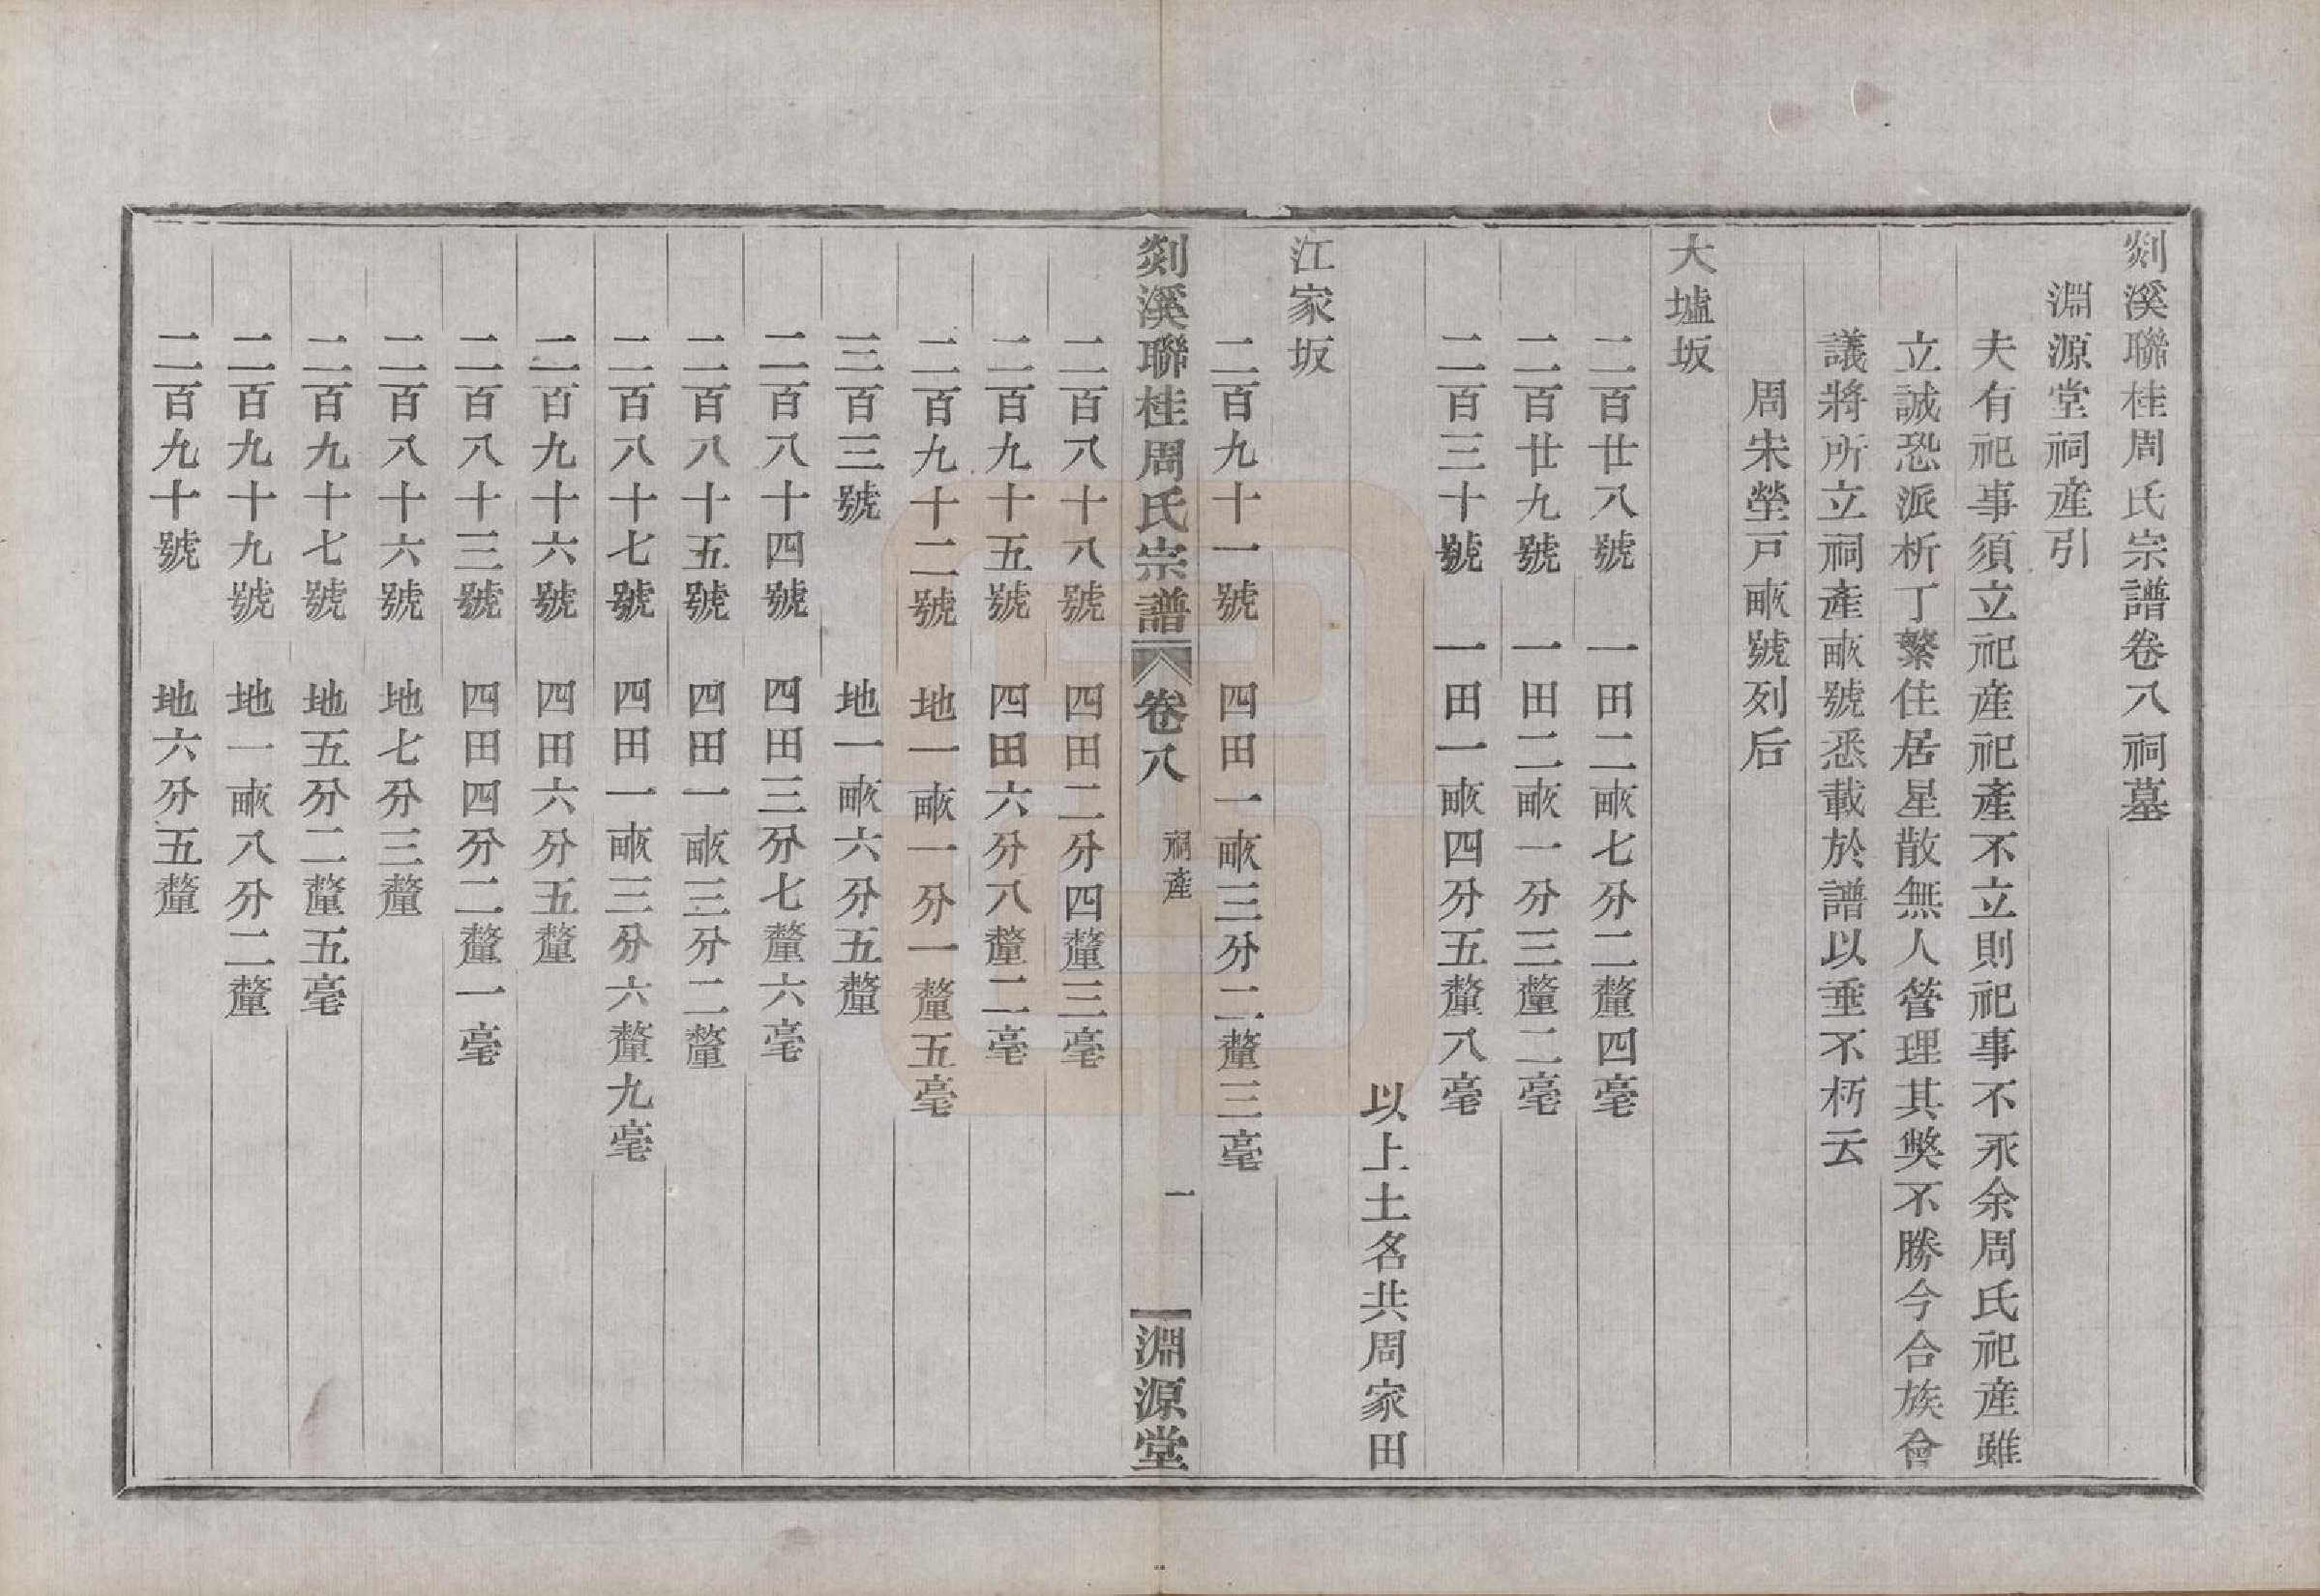 剡溪聯桂周氏宗譜卷八祠墓
淵源堂祠產引
夫有祀事須立祀產祀產不立則祀事不永余周氏祀產雖
立誠恐派析丁繁住居星散無人營理其獘不勝今合族會
議將所立祠產畝號悉載於譜以垂不朽云
周宋塋戸畝號列后
大墟坂
二百廿八號　一田二畝七分二釐四毫
二百廿九號　一田二畝一分三釐二毫
二百三十號　一田一畝四分五釐八毫
以上土名共周家田
江家坂
二百九十一號　四田一畝三分二釐三毫
剡溪聯桂周氏宗譜　卷八　祠產　一　淵源堂
二百八十八號　四田二分四釐三毫
二百九十五號　四田六分八釐二毫
二百九十二號　地一畝一分一釐五毫
三百三號　地一畝六分五釐
二百八十四號　四田三分七釐六毫
二百八十五號　四田一畝三分二釐
二百八十七號　四田一畝三分六釐九毫
二百九十六號　四田六分五釐
二百八十三號　四田四分二釐一毫
二百八十六號　地七分三釐
二百九十七號　地五分二釐五毫
二百九十九號　地一畝八分二釐
二百九十號　地六分五釐